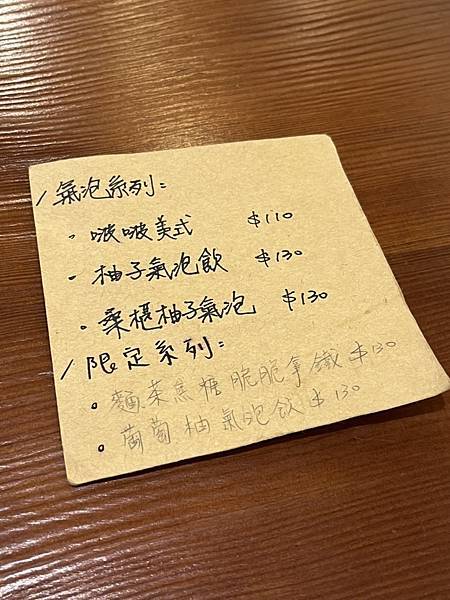 /氣泡系列：
• 啵啵美式 $110
- 柚子氣泡飲 $130
• 桑椹柚子氣泡 $130
/限定系列：
• 麵茶焦糖脆脆拿鐵 $130
• 葡萄柚氣泡飲 $130